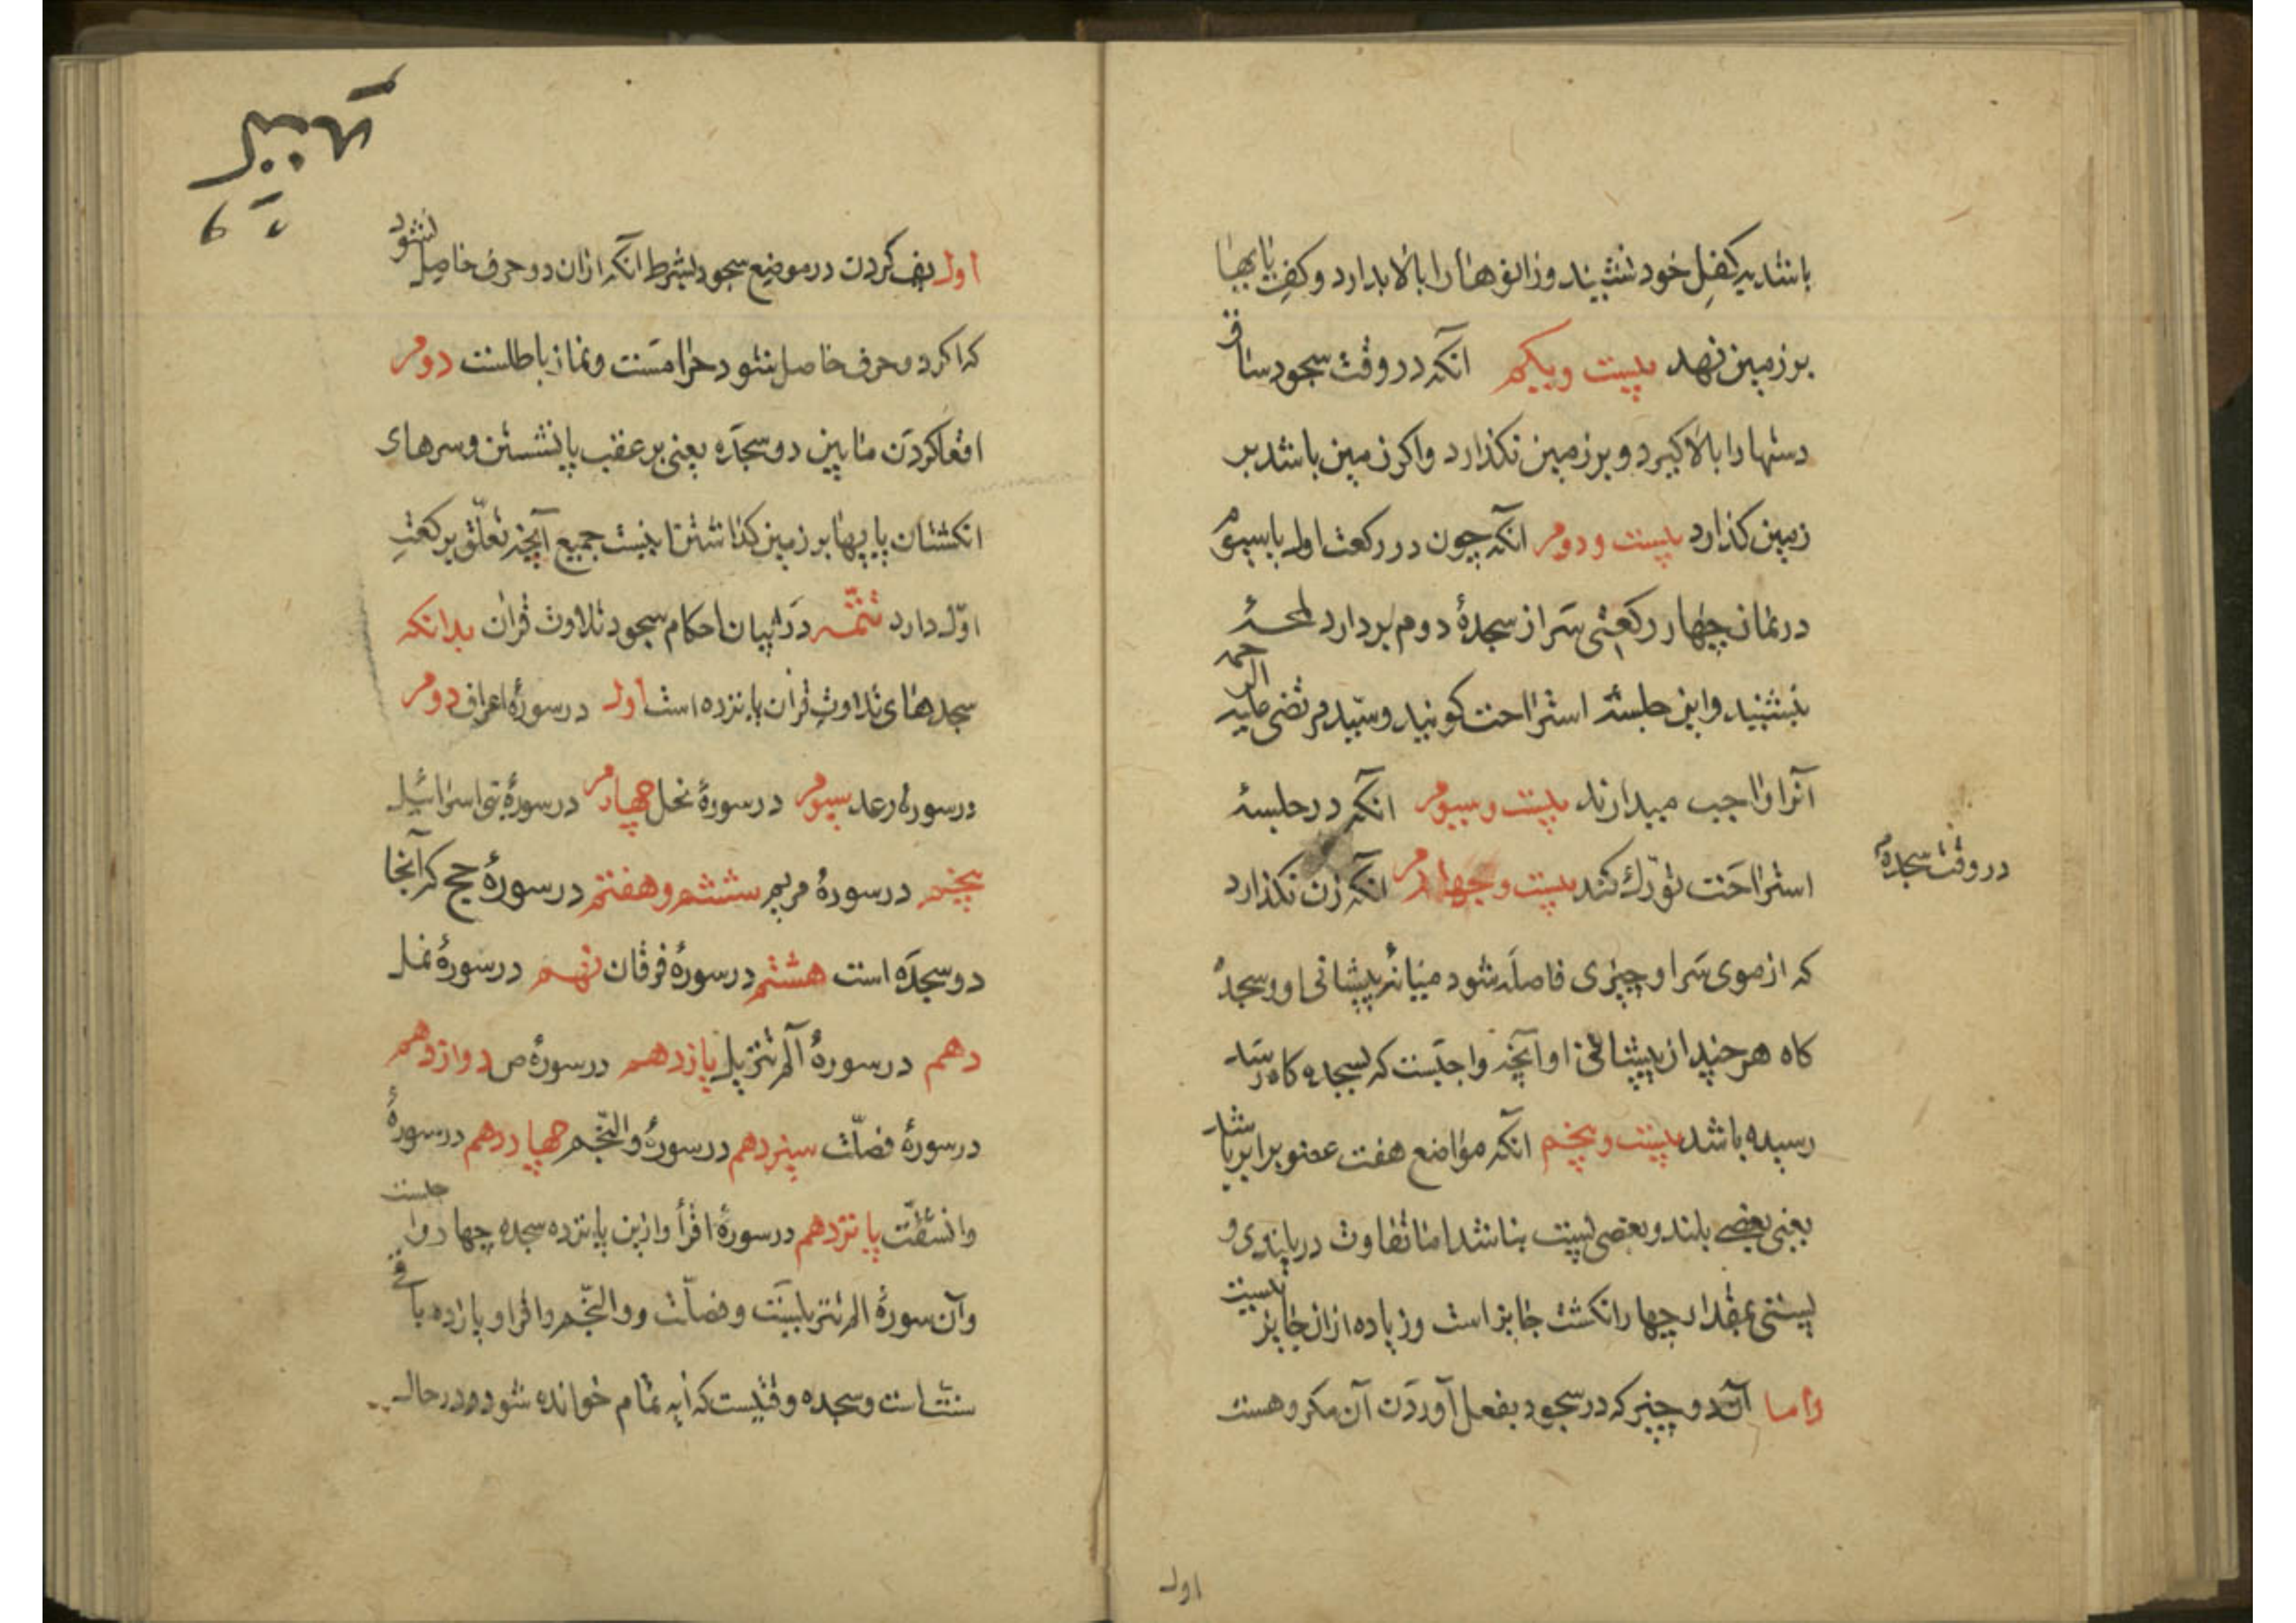 باشد بر کفل خود نشیند و زانوها را بالا بدارد و کف پایها
بر زمین نهد بیست و یکم آنکه در وقت سجود ساق
دستها را بالا کیرد و بر زمین نکذارد و اکر زمین باشد بر
زمین کذارد بیست و دوم آنکه چون در رکعت اول یا سیوم
در نماز چهار رکعتی سر از سجدهٔ دوم بردارد لمحهٔ
بنشیند و این جلسهٔ استراحت کویند و سید مرتضی علیه الرحمه
آنرا واجب میدارند بیست و سیوم آنکه در جلسهٔ
استراحت تورّک کند بیست و چهارم آنکه زن نکذارد
در وقت سجدهٔ
که از موی سر او چیزی فاصله شود میانهٔ پیشانی او و سجدهٔ
کاه هر چند از پیشانی او آنچه واجبست که بسجده کاه رسد
رسیده باشد بیست و پنجم آنکه مواضع هفت عضو برابر باشد
یعنی بعضی بلند و بعضی پست نباشد اما تفاوت در بلندی و
پستی بمقدار چهار انکشت جایز است و زیاده از ان جایز نیست
و اما آن دو چیز که در سجود بفعل آوردن آن مکروهست
اول
اول پف کردن در موضع سجود بشرط آنکه از ان دو حرف حاصل نشود
که اکر دو حرف حاصل شود حرامست و نماز باطلست دوم
اقعا کردن مابین دو سجده یعنی بر عقب پا نشستن و سرهای
انکشتان پایها بر زمین کذاشتن اینست جمیع آنچه تعلّق برکعت
اوّل دارد تتمّه در بیان احکام سجود تلاوت قران بدانکه
سجدهای تلاوت قران پانزده است اول در سورهٔ اعراف دوم
در سورهٔ رعد سیوم در سورهٔ نحل چهارم در سورهٔ بنی اسرائیل
پنجم در سورهٔ مریم ششم و هفتم در سورهٔ حج که آنجا
دو سجده است هشتم در سورهٔ فرقان نهم در سورهٔ نمل
دهم در سورهٔ الم تنزیل یازدهم در سورهٔ ص دوازدهم
در سورهٔ فصلّت سیزدهم در سورهٔ والنّجم چهاردهم در سورهٔ
وانشقّت پانزدهم در سورهٔ اقرأ و ازین پانزده سجده چهار واجبست
و آن سورهٔ الم تنزیلست و فصلّت و والنّجم و اقرا و یازده باقی
سنت است و سجده وقتیست که آیه تمام خوانده شود و در حال